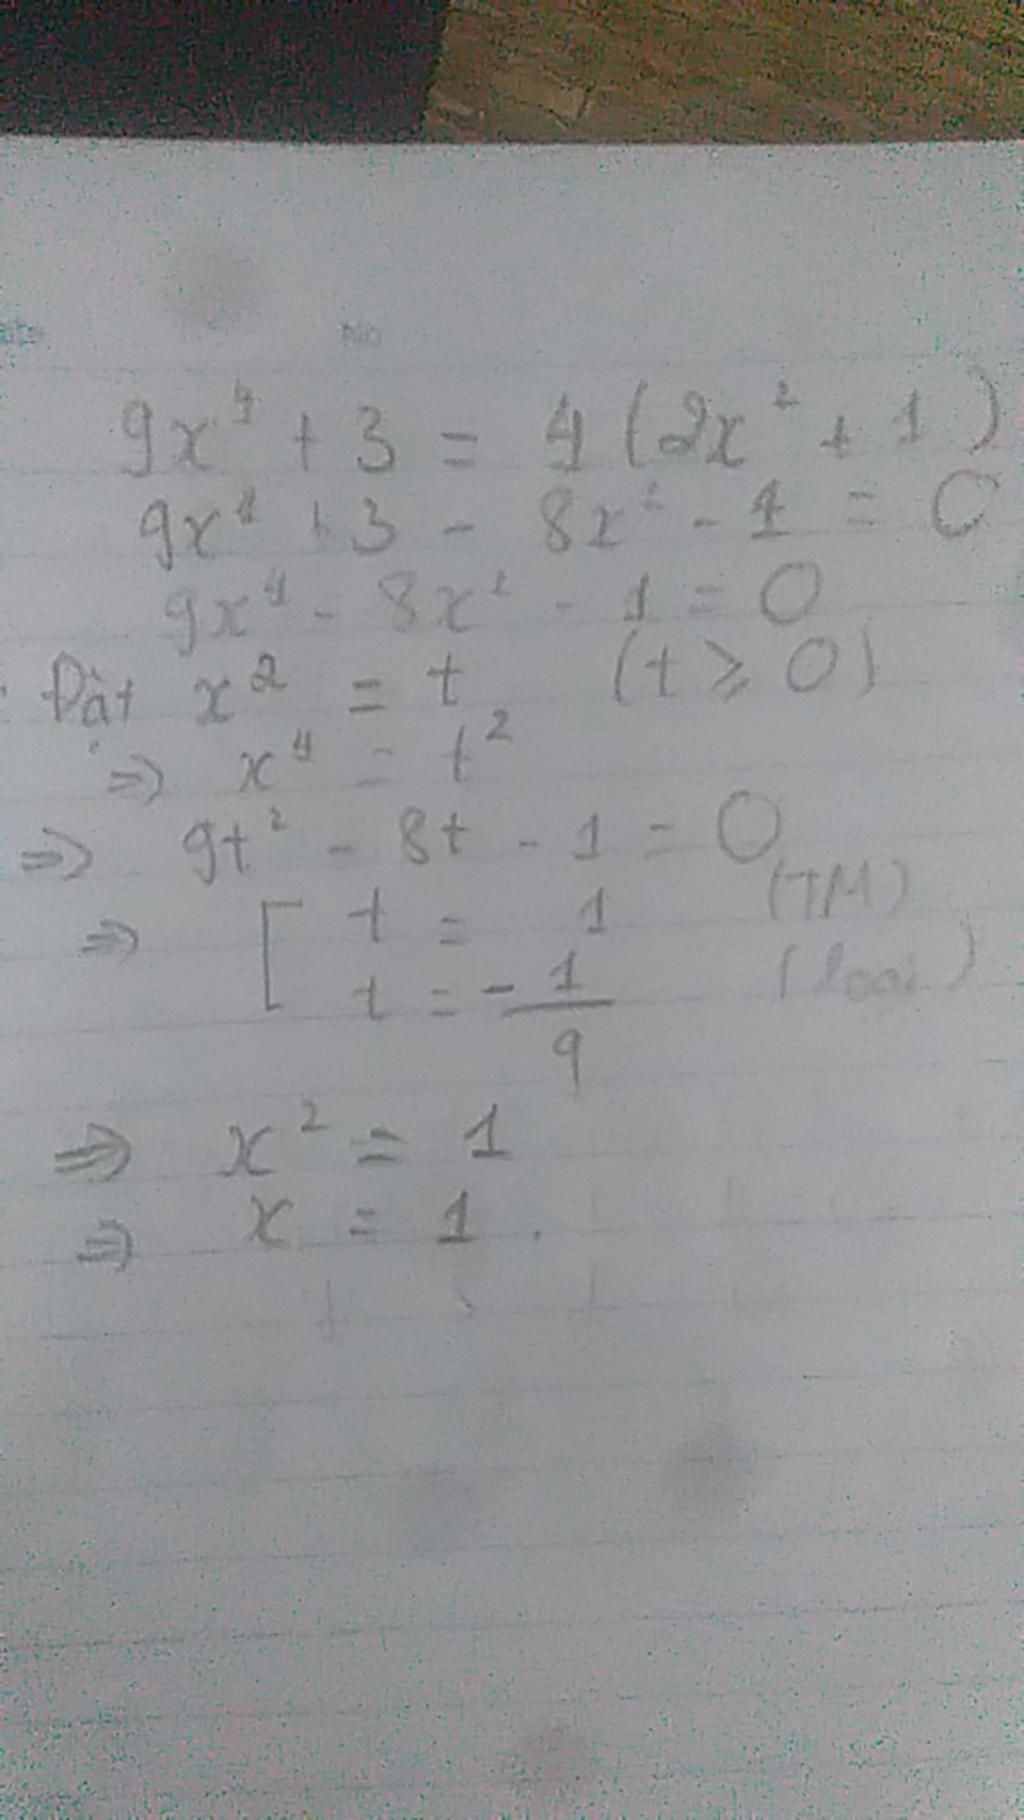 No
9x⁴ + 3 = 4(2x² + 1)
9x⁴ + 3 - 8x² - 1 = 0
9x⁴ - 8x² - 1 = 0
Đặt x² = t (t ≥ 0)
⇒ x⁴ = t²
⇒ 9t² - 8t - 1 = 0
⇒ [ t = 1 (TM)
t = -1/9 (loại)
⇒ x² = 1
⇒ x = 1.